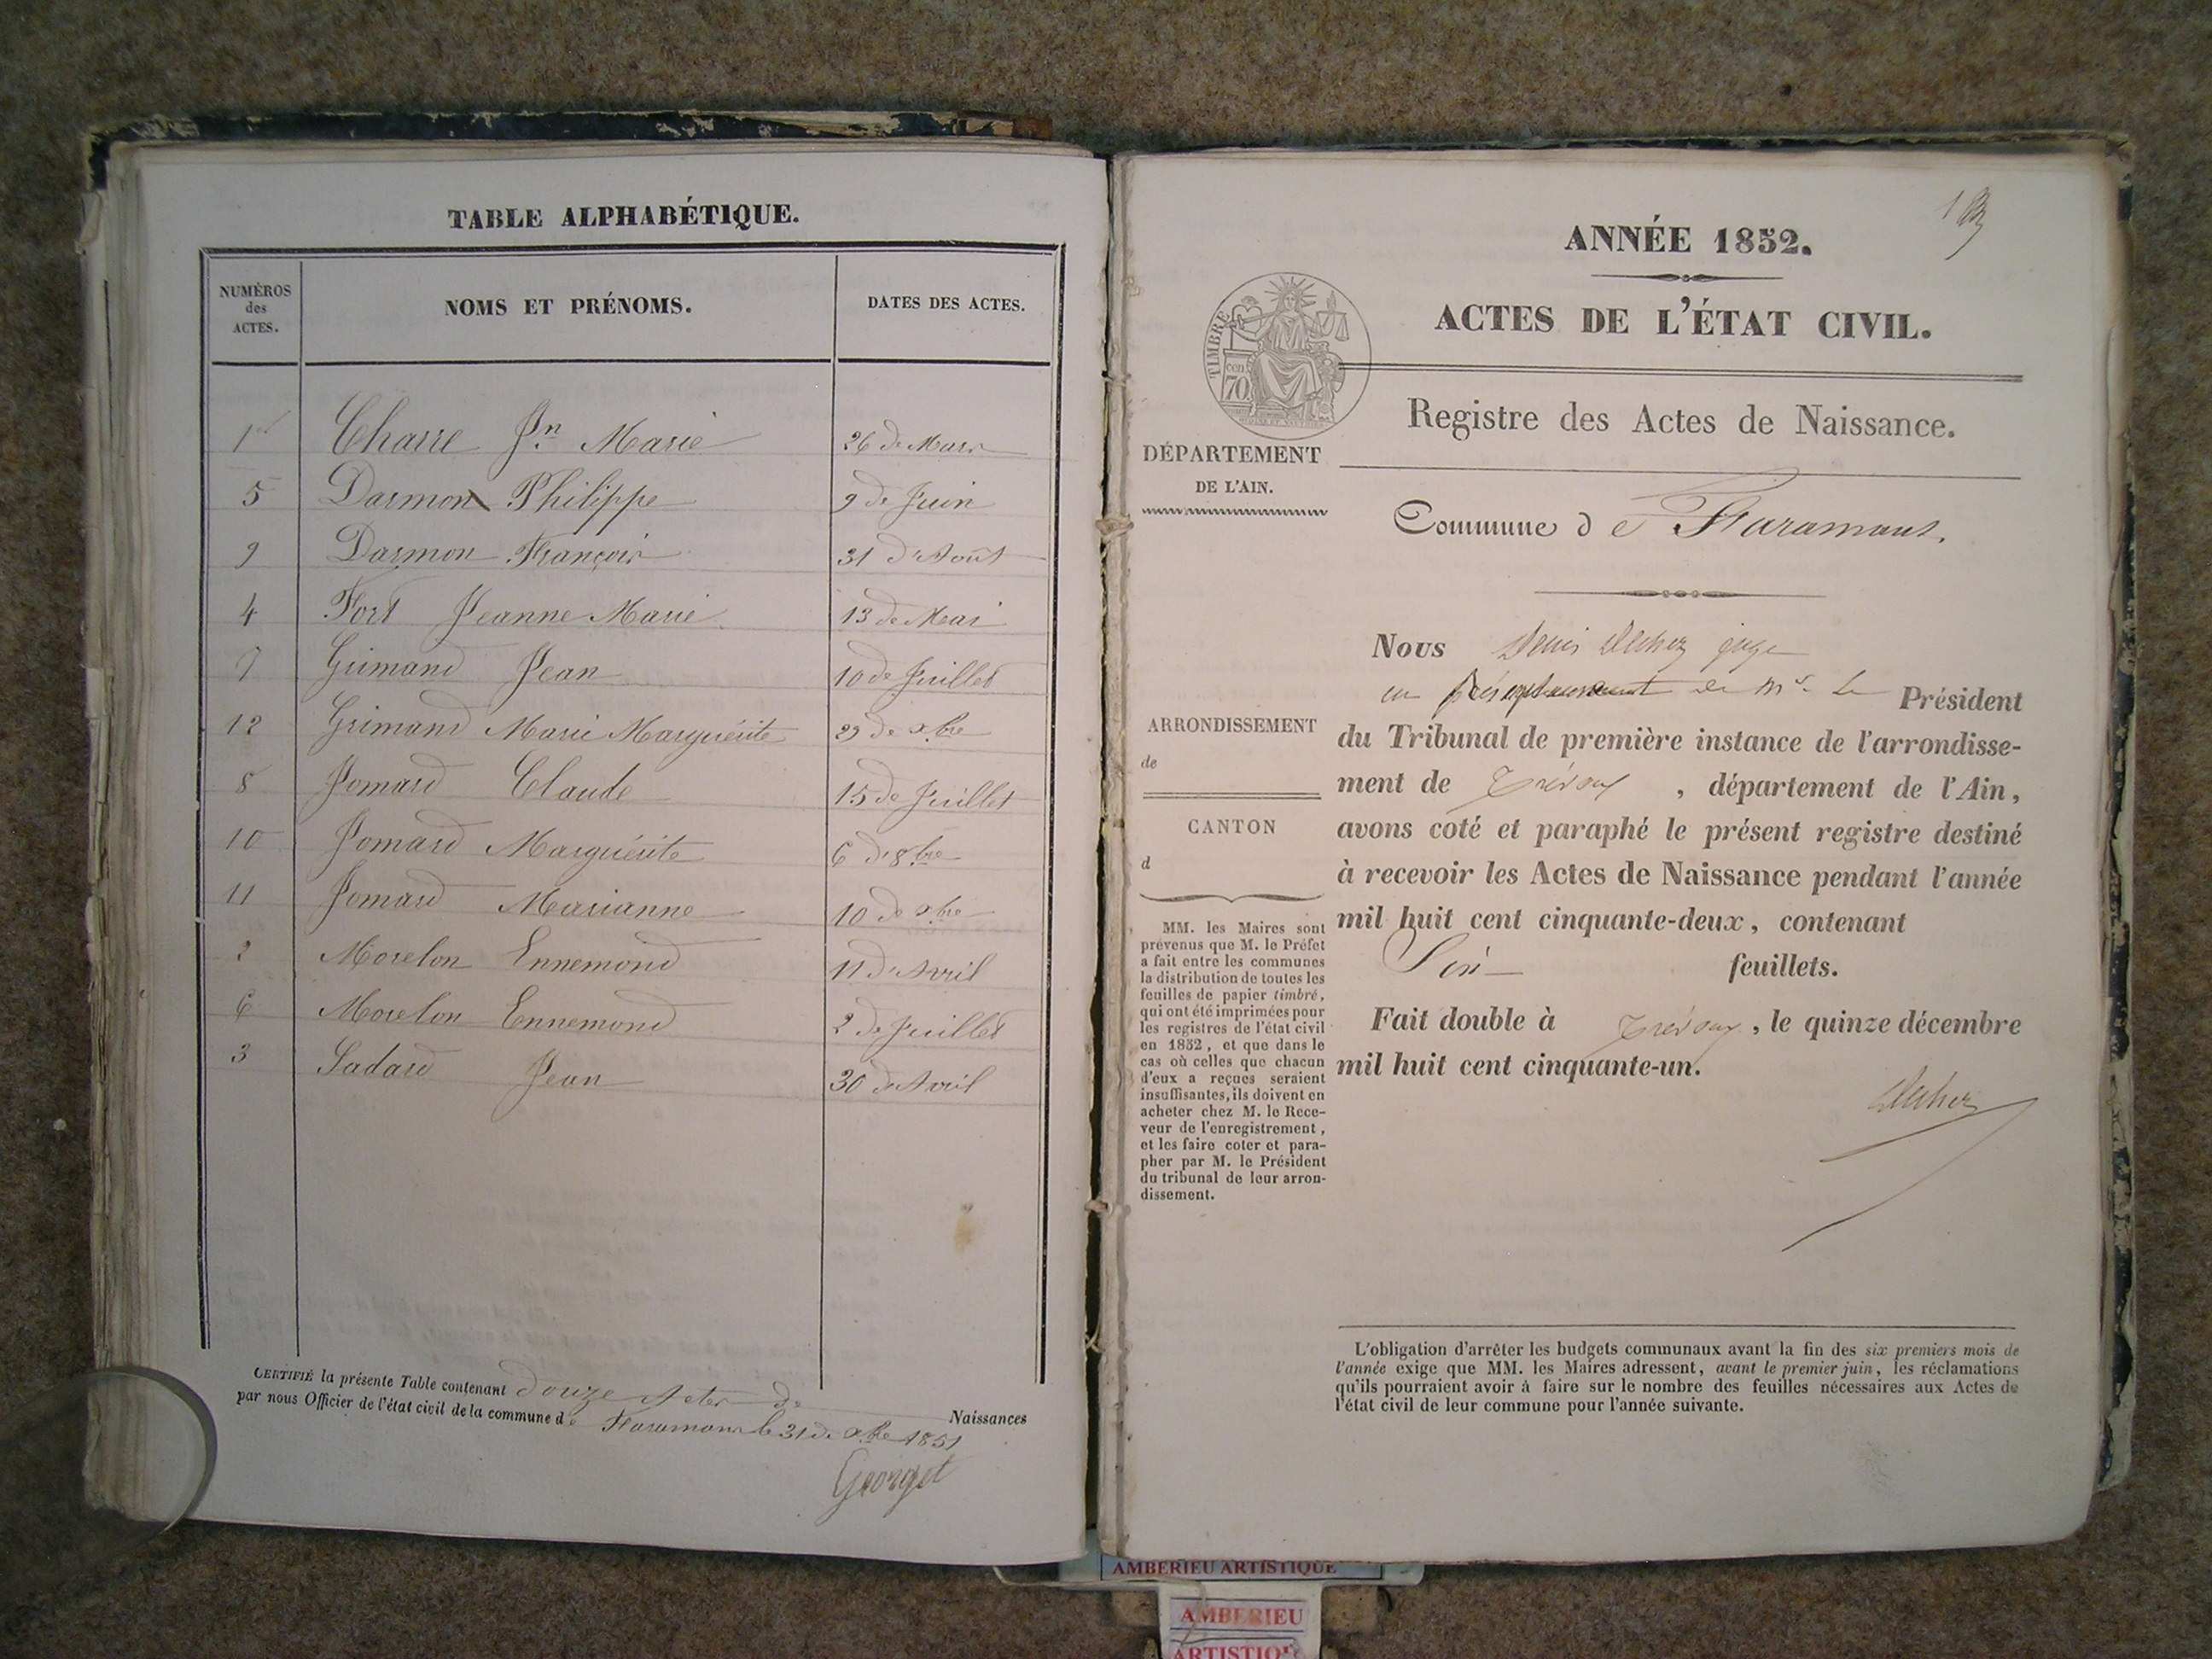 TABLE ALPHABÉTIQUE.
NUMÉROS
des
ACTES.
NOMS ET PRÉNOMS.
DATES DES ACTES.
1er Charre Jn Marie 26 de Mars
5 Darmon Philippe 9 de Juin
9 Darmon François 31 d'Août
4 Fort Jeanne Marie 13 de Mai
7 Grimand Jean 10 de Juillet
12 Grimand Marie Marguérite 29 de xbre
8 Jomard Claude 15 de Juillet
10 Jomard Marguérite 6 d'8bre
11 Jomard Marianne 10 de xbre
2 Morelon Ennemond 11 d'Avril
6 Morelon Ennemond 2 de Juillet
3 Sadard Jean 30 d'Avril
CERTIFIÉ la présente Table contenant douze Actes de Naissances
par nous Officier de l'état civil de la commune de Faramans le 31 de xbre 1851
Georget
1
ANNÉE 1852.
ACTES DE L'ÉTAT CIVIL.
TIMBRE
cen.
70
Registre des Actes de Naissance.
DÉPARTEMENT
DE L'AIN.
Commune de Faramans.
ARRONDISSEMENT
de
CANTON
d
MM. les Maires sont
prévenus que M. le Préfet
a fait entre les communes
la distribution de toutes les
feuilles de papier timbré,
qui ont été imprimées pour
les registres de l'état civil
en 1852, et que dans le
cas où celles que chacun
d'eux a reçues seraient
insuffisantes, ils doivent en
acheter chez M. le Rece-
veur de l'enregistrement,
et les faire coter et para-
pher par M. le Président
du tribunal de leur arron-
dissement.
Nous Denis juge
en de Mr Le Président
du Tribunal de première instance de l'arrondisse-
ment de Trévoux, département de l'Ain,
avons coté et paraphé le présent registre destiné
à recevoir les Actes de Naissance pendant l'année
mil huit cent cinquante-deux, contenant
Six feuillets.
Fait double à Trévoux, le quinze décembre
mil huit cent cinquante-un.
L'obligation d'arrêter les budgets communaux avant la fin des six premiers mois de
l'année exige que MM. les Maires adressent, avant le premier juin, les réclamations
qu'ils pourraient avoir à faire sur le nombre des feuilles nécessaires aux Actes de
l'état civil de leur commune pour l'année suivante.
AMBERIEU ARTISTIQUE
AMBERIEU
ARTISTIQUE